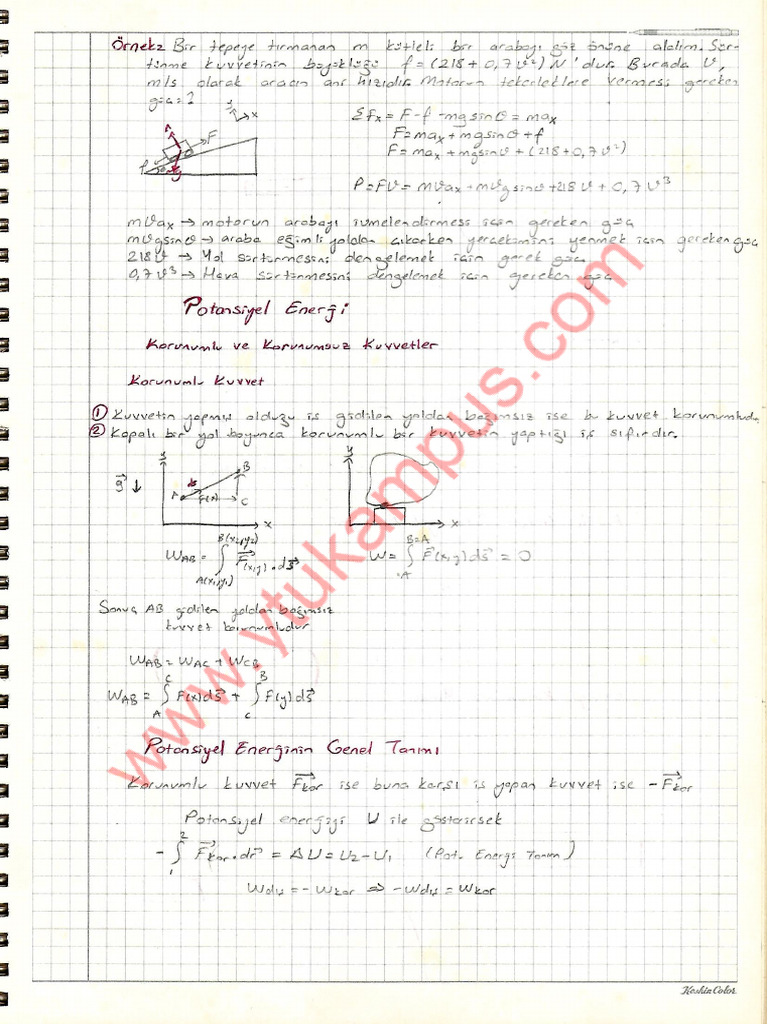 Örnek: Bir tepeye tırmanan m kütleli bir arabayı göz önüne alalım. Sür-
tünme kuvvetinin büyüklüğü f = (218 + 0,7v²) N 'dur. Burada v,
m/s olarak aracın ani hızıdır. Motorun tekerleklere vermesi gereken
güç = ?
y x
Σfx = F - f - mgsinθ = max
F = max + mgsinθ + f
F = max + mgsinθ + (218 + 0,7v²)
F
f
P = FV = mvax + mvgsinθ + 218v + 0,7v³
mvax → motorun arabayı ivmelendirmesi için gereken güç
mvgsinθ → araba eğimli yoldan çıkarken yerçekimini yenmek için gereken güç
218v → Yol sürtünmesini dengelemek için gerek güç
0,7v³ → Hava sürtünmesini dengelemek için gereken güç
Potansiyel Enerji
Korunumlu ve Korunumsuz Kuvvetler
Korunumlu Kuvvet
① Kuvvetin yapmış olduğu iş gidilen yoldan bağımsız ise bu kuvvet korunumludur.
② Kapalı bir yol boyunca korunumlu bir kuvvetin yaptığı iş sıfırdır.
g⃗ ↓ y A B C x
y x
W_AB = ∫ F⃗(x,y) . ds⃗
B(x2,y2)
A(x1,y1)
W = ∫ F⃗(x,y) ds⃗ = 0
B=A
A
Sonuç AB gidilen yoldan bağımsız
kuvvet korunumludur
W_AB = W_AC + W_CB
W_AB = ∫ F(x) ds⃗ + ∫ F(y) ds⃗
C B
A C
Potansiyel Enerjinin Genel Tanımı
Korunumlu kuvvet F⃗kor ise buna karşı iş yapan kuvvet ise -F⃗kor
Potansiyel enerjiyi U ile gösterirsek
- ∫₁² F⃗kor . dr⃗ = ΔU = U2 - U1 (Pot. Enerji Tanım)
Wdış = - Wkor ⇒ - Wdış = Wkor
www.ytukampus.com
Keskin Color